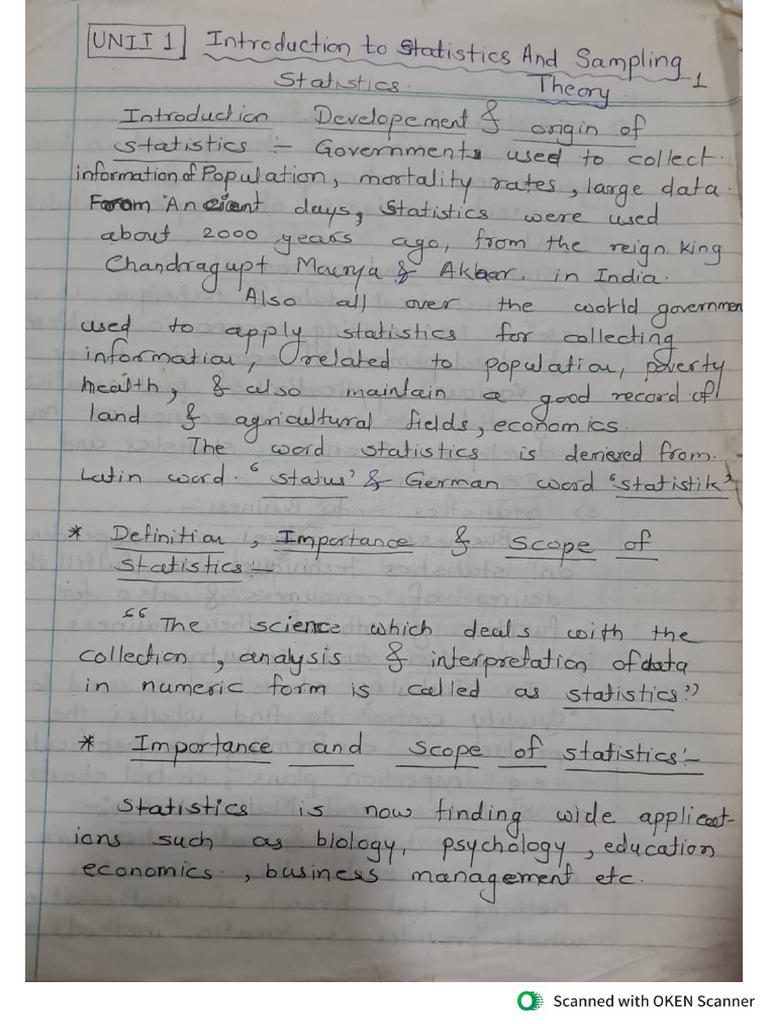 UNIT 1 Introduction to Statistics And Sampling
Statistics. Theory 1
Introduction Developement & origin of
statistics :- Governments used to collect.
information of Population, mortality rates, large data.
From Ancient days, Statistics were used
about 2000 years ago, from the reign king
Chandragupt Maurya & Akbar. in India.
Also all over the world governmen
used to apply statistics for collecting
information, related to population, poverty
health, & also maintain a good record of
land & agricultural fields, economics.
The word statistics is deriered from.
Latin word. 'status' & German word 'statistik'
* Definition, Importance & scope of
statistics :-
"The science which deals with the
collection, analysis & interpretation of data
in numeric form is called as statistics."
* Importance and scope of statistics :-
Statistics is now finding wide applicat-
ions such as biology, psychology, education
economics., business management etc.
Scanned with OKEN Scanner